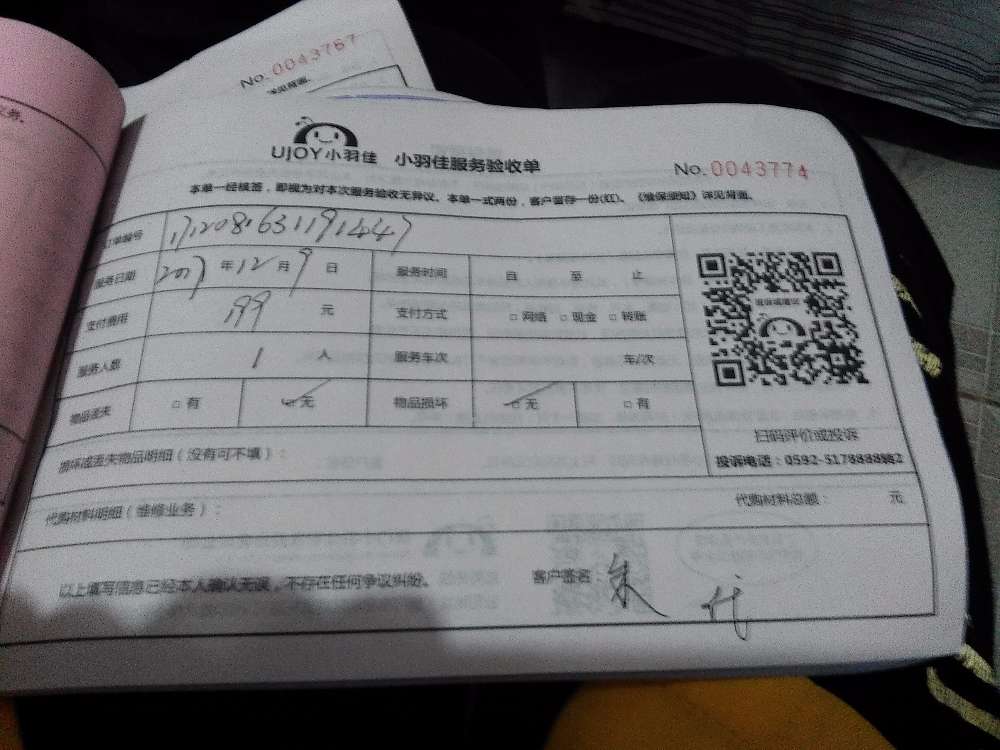 No. 0043767
详见背面.
UJOY小羽佳 小羽佳服务验收单
No. 0043774
本单一经核签，即视为对本次服务验收无异议。本单一式两份，客户留存一份(红)。《维保须知》详见背面。
订单编号
服务日期 2017 年 12 月 9 日 服务时间 自 至 止
支付费用 199 元 支付方式 □网络 □现金 □转账
服务人数 1 人 服务车次 车/次
物品丢失 □有 □无 物品损坏 □无 □有
扫码评价或投诉
损坏或丢失物品明细（没有可不填）：
代购材料明细（维修业务）： 代购材料总额： 元
以上填写信息已经本人确认无误，不存在任何争议纠纷。 客户签名： 朱 代